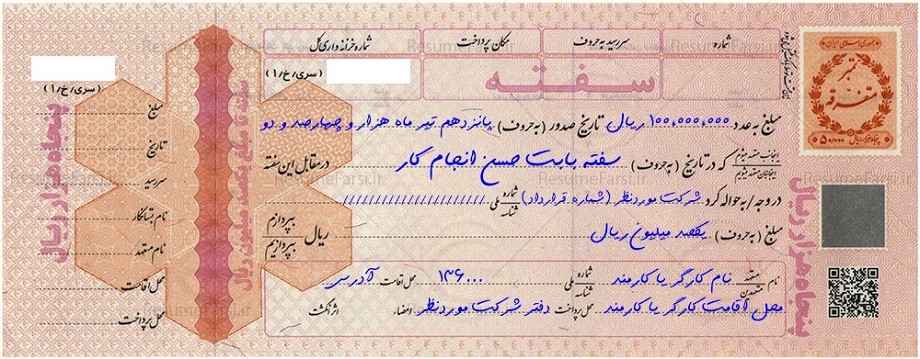 جمهوری اسلامی ایران
تمبر
متفرقه
شماره
سررسید به حروف
مکان پرداخت
شماره خزانه داری کل
سفته
(سری/خ/۱)
(سری/خ/۱)
مبلغ به عدد ۱۰۰,۰۰۰,۰۰۰ ریال تاریخ صدور (به حروف) پانزدهم تیر ماه هزار و چهارصد و دو
اینجانب متعهد میشوم
اینجانبان متعهد میشویم
که در تاریخ (به حروف) سفته بابت حسن انجام کار در مقابل این سفته
در وجه / به حواله کرد شرکت موردنظر (شماره قرارداد) شماره شناسه ملی ////////////////////// بپردازم
مبلغ (به حروف) یکصد میلیون ریال ریال بپردازیم
نام متعهد متعهدین نام کارگر یا کارمند شماره شناسه ملی ۱۳۶۰۰۰ محل اقامت آدرس
محل اقامت کارگر یا کارمند محل پرداخت دفتر شرکت موردنظر امضاء اثر انگشت
مبلغ
تاریخ
سررسید
نام بستانکار
نام متعهد
محل اقامت
محل پرداخت
پنجاه هزار ریال
سفته تا مبلغ یکصد میلیون ریال
پنجاه هزار ریال
ResumeFarsi.ir